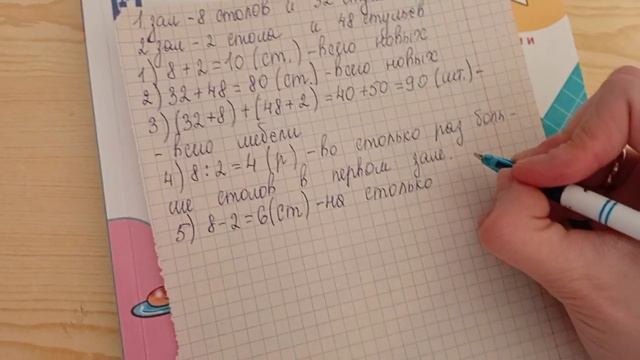 1 зал - 8 столов и 32
2 зал - 2 стола и 48 стульев
1) 8 + 2 = 10 (ст.) - всего новых
2) 32 + 48 = 80 (ст.) - всего новых
3) (32+8) + (48+2) = 40 + 50 = 90 (шт.) -
- всего мебели
4) 8 : 2 = 4 (р) - во столько раз боль -
ше столов в первом зале.
5) 8 - 2 = 6 (ст) - на столько